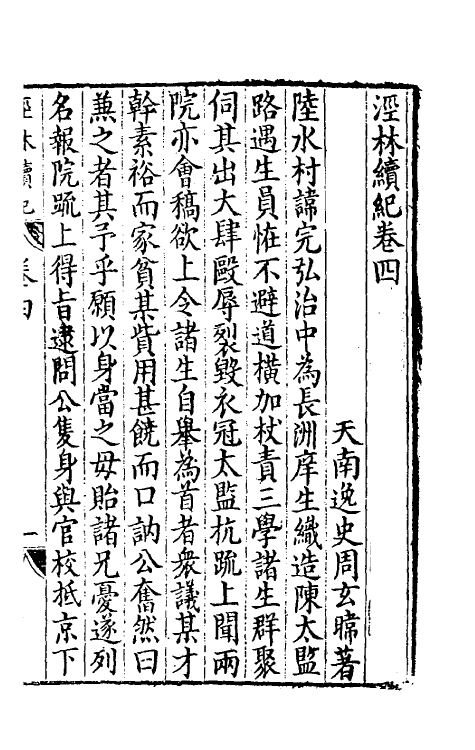 涇林續紀卷四
天南逸史周玄暐著
陸水村諱完弘治中為長洲庠生織造陳太監
路遇生員恠不避道橫加杖責三學諸生群聚
伺其出大肆毆辱裂毀衣冠太監抗疏上聞兩
院亦會稿欲上令諸生自舉為首者衆議某才
幹素裕而家貧某貲用甚饒而口訥公奮然曰
兼之者其予乎願以身當之毋貽諸兄憂遂列
名報院疏上得旨逮問公隻身與官校抵京下
涇林續紀 卷四 一